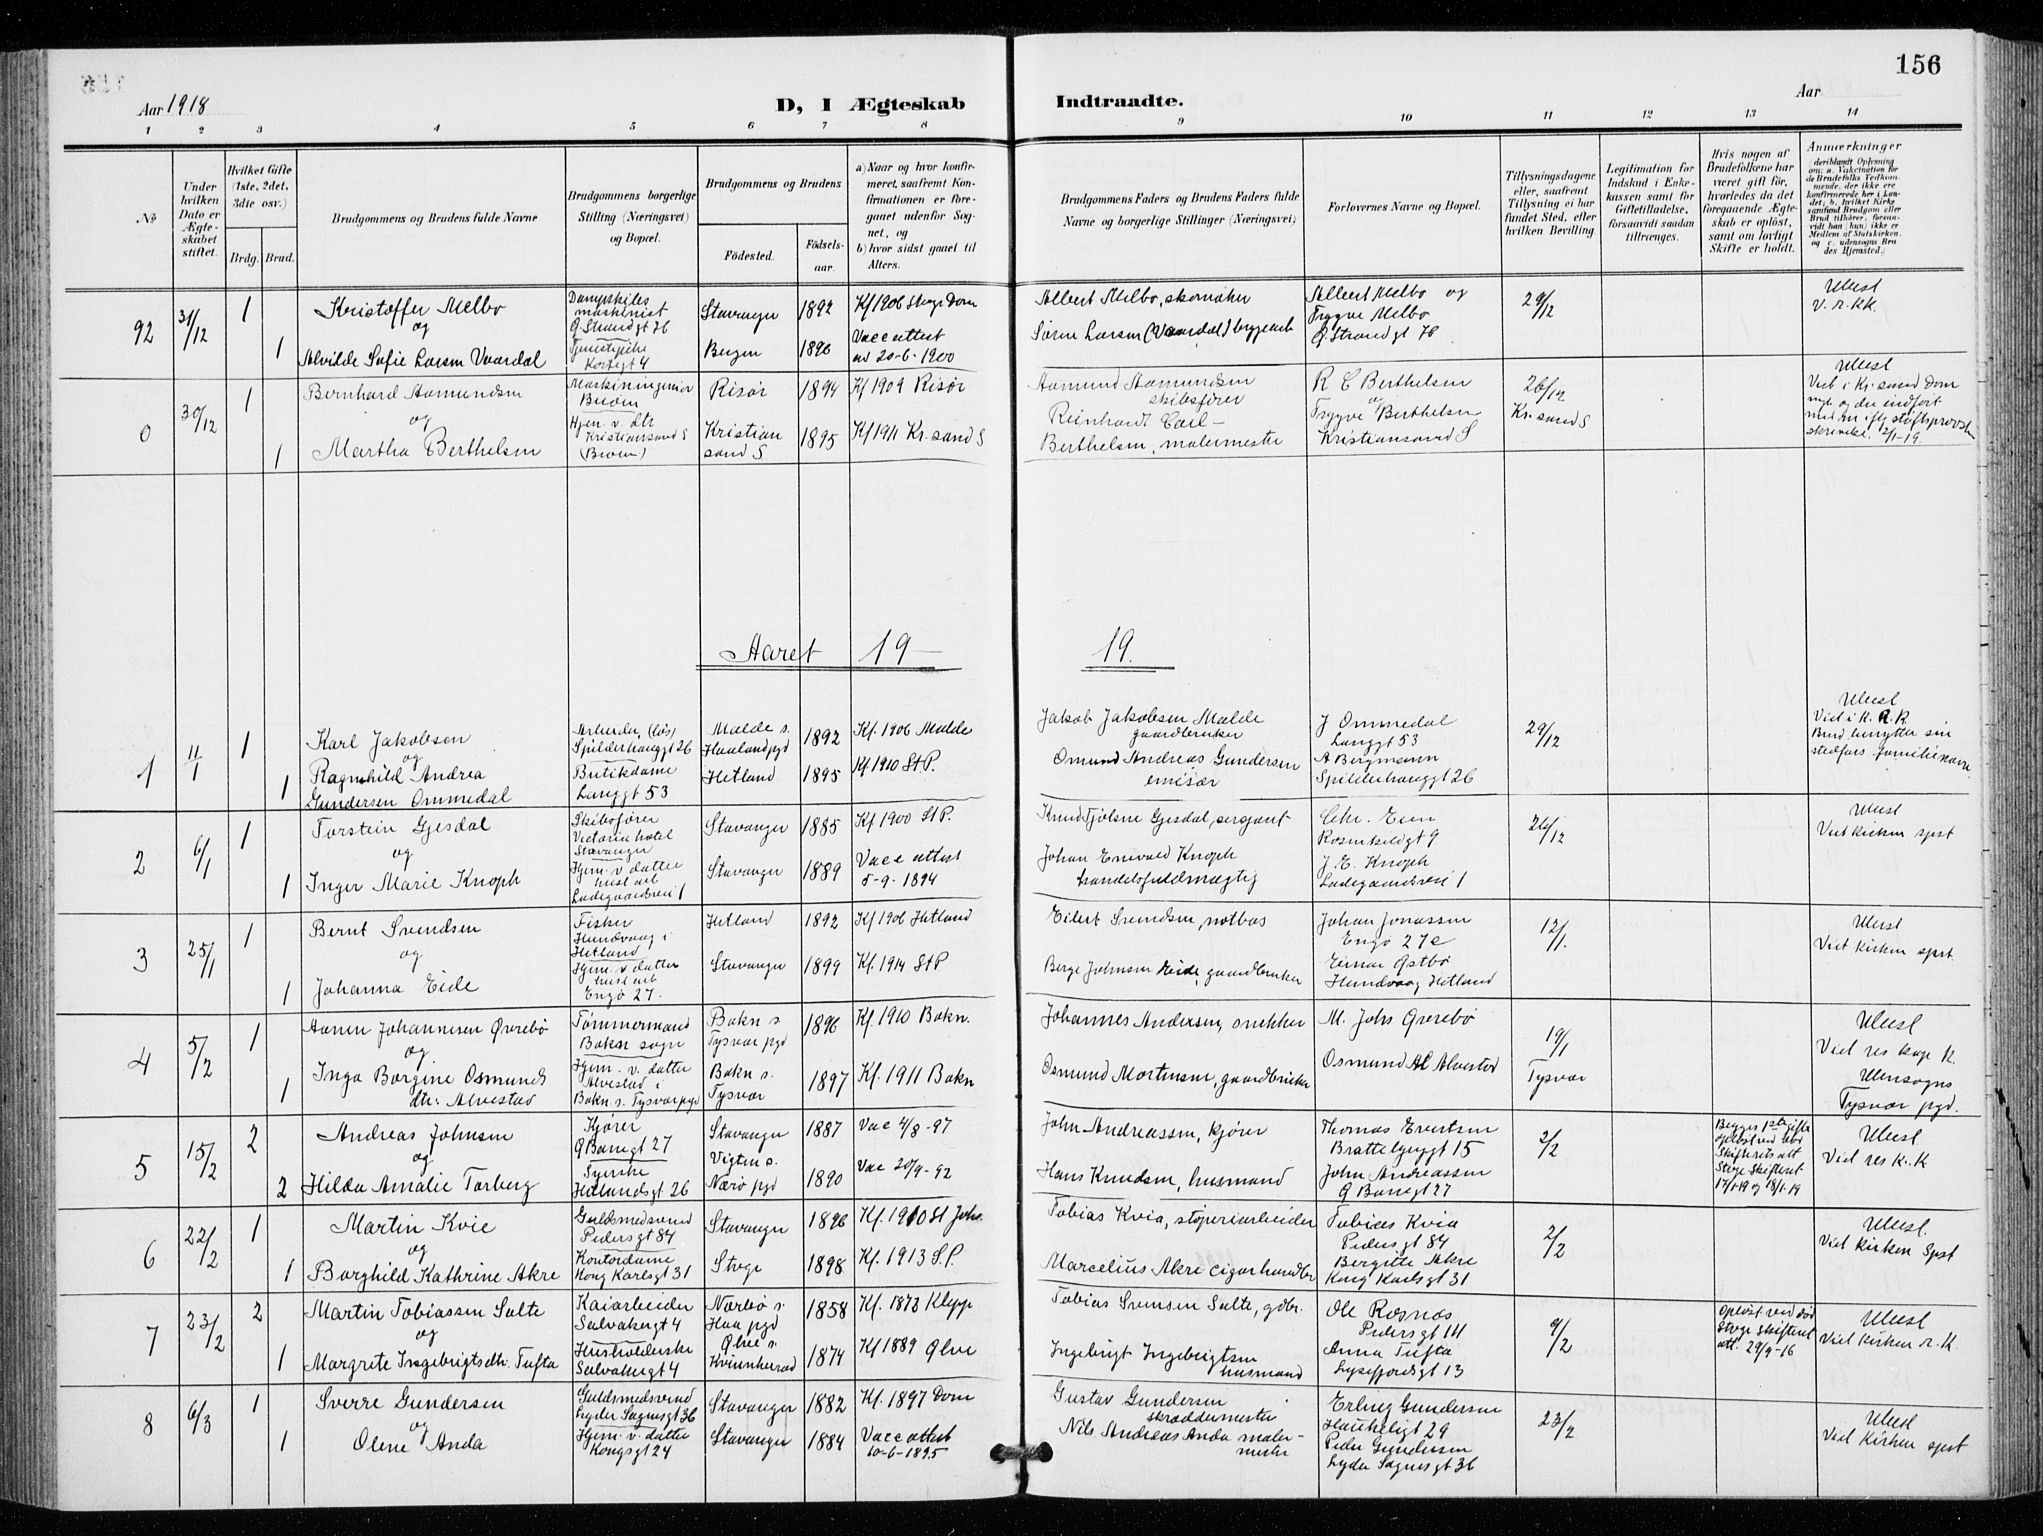 156
Aar 1918
D, I Ægteskab
Indtraadte.
Aar
1 2 3 4 5 6 7 8 9 10 11 12 13 14
No
Under hvilken Dato er Ægteskabet stiftet.
Hvilket Gifte (1ste, 2det, 3die osv.)
Brdg. Brud.
Brudgommens og Brudens fulde Navne
Brudgommens borgerlige Stilling (Næringsvei) og Bopæl.
Brudgommens og Brudens
Födested.
Födselsaar.
a) Naar og hvor konfirmeret, saafremt Konfirmationen er foregaaet udenfor Sognet, og
b) hvor sidst gaaet til Alters.
Brudgommens Faders og Brudens Faders fulde Navne og borgerlige Stillinger (Næringsvei)
Forlovernes Navne og Bopæl.
Tillysningsdagene eller, saafremt Tillysning ei har fundet Sted, efter hvilken Bevilling.
Legitimation for Indskud i Enkekassen samt for Giftetilladelse, forsaavidt saadan tiltrænges.
Hvis nogen af Brudefolkene har været gift för, hvorledes da det foregaaende Ægteskab er oplöst, samt om lovligt Skifte er holdt.
Anmærkninger
92
31/12
1
Kristoffer Melbo
og
1
Alvilde Sofie Larsen Vaardal
Dampskibs maskinist
Ø. Strandgt 76
Kortegt 4
Stavanger 1892
Bergen 1896
Kf 1906 Stvgr Dom
Vacc attest
av 20-6-1900
Albert Melbo, skomaker
Søren Larsen (Vaardal) bryggearb
Albert Melbo og
Trygve Melbo
Ø. Strandgt 78
29/12
Ubesl
V. r. kk.
0
30/12
1
Bernhard Aamundsen
og
1
Martha Berthelsen
Maskiningeniør
Hjem. v. dtr
Kristianssand S
Risør 1894
Kristian
sand S 1895
Kf 1909 Risør
Kf 1911 Kr.sand S
Aamund Aamundsen
skibsfører
Reinhardt Carl
Berthelsen, malermester
R C Berthelsen
og
Trygve Berthelsen
Kristianssand S
26/12
Kr.sand S
Ubesl
Viet i Kr.sand Dom
skrivelse 12/1-19.
Aaret 19 19.
1
11/1
1
Karl Jakobsen
og
1
Ragnhild Andrea
Gundersen Ommedal
Arbeider (løs)
Spilderhauggt 26
Butikdame
Langgt 53
Malde s.
Haaland pgd 1892
Hetland 1895
Kf. 1906 Malde
Kf 1910 St P.
Jakob Jakobsen Malde
gaardbruker
Omund Andreas Gundersen
emisær
J Ommedal
Langgt 53
A Bergmann
Spilderhauggt 26
29/12
Ubesl
Viet i R. K. K.
Brud benytter sin
stedfars familienavn
2
6/1
1
Torstein Gjesdal
og
1
Inger Marie Knoph
Skibsfører
Victoria hotel
Stavanger
Hjem. v datter
huslarb
Ladegaardsvei 1
Stavanger 1885
Stavanger 1889
Kf 1900 St P.
Vacc attest
5-9-1894
Knud Tjølsen Gjesdal, sergeant
Johan Enevald Knoph
handelsfuldmægtig
Chr. Eien
Rosenkildegt 9
J. E. Knoph
Ladegaardsvei 1
26/12
Ubesl
Viet kirken spst
3
25/1
1
Bernt Svendsen
og
1
Johanna Eide
Fisker
Hundvaag i
Hetland
Hjem. v datter
huslarb
Engø 27.
Hetland 1892
Stavanger 1899
Kf 1906 Hetland
Kf. 1914 St P
Eilert Svendsen, notbas
Berge Johnsen Eide, gaardbruker
Johan Jonassen
Engø 27 c
Einar Østbø
Hundvaag Hetland
12/1.
Ubesl
Viet kirken spst.
4
5/2
1
Aanen Johannesen Øvrebø
og
1
Inga Borgine Osmunds
dtr. Alvestad
Tømmermand
Bokn sogn
Hjem. v. datter
Alvestad i
Bokn s. Tysvær pgd
Bokn s.
Tysvær pgd 1896
Bokn s.
Tysvær 1897
Kf. 1910 Bokn.
Kf. 1911 Bokn
Johannes Andersen, snekker
Osmund Mortensen, gaardbruker
M. Johs Øvrebø
Osmund Al Alvestad
19/1
Tysvær
Ubesl
Viet res kap K.
Utensogns
Tysvær pgd.
5
15/2
2
Andreas Johnsen
og
2
Hilda Amalie Torberg
Kjører
Ø Banegt 27
Hetlandsgt 26
Stavanger 1887
Vigten s.
Nærø pgd 1890
Vac 4/8-97
Vac 20/9-92
John Andreassen, kjører
Hans Knudsen, husmand
Thomas Evertsen
Brattebyggt 15
John Andreassen
Ø Banegt 27
2/2
Begges 1ste gifte
opløst ved død
Skifterets att
Stvgr Skifteret
17/1-19 og 18/1-19
Ubesl
Viet res K. K
6
22/2
1
Martin Kvie
og
1
Borghild Kathrine Akre
Guldsmedsvend
Pedersgt 84
Kontordame
Kong Karlsgt 31
Stavanger 1896
Stvgr 1898
Kf. 1910 St Johs.
Kf. 1913 S.P.
Tobias Kvia, støperiarbeider
Marcelius Akre cigarhandler
Tobias Kvia
Pedersgt 84
Bergitte Akre
Kong Karlsgt 31
2/2
Ubesl.
Viet kirken spst
7
23/2
2
Martin Tobiassen Salte
og
1
Margrete Ingebrigtsdtr. Tufta
Kaiarbeider
Salvakergt 4
Husholderske
Salvakergt 4
Nærbø s.
Haa pgd 1858
Ølve s.
Kvinnherrad 1874
Kf. 1873 Klepp
Kf 1889 Ølve
Tobias Svensen Salte, gdbr.
Ingebrigt Ingebrigtsen
husmand
Ole Rosnes
Pedersgt 111
Anna Tufta
Lysefjordsgt 13
9/2
Opløst ved død
Stvgr Skifteret
att. 29/9-16
Ubesl
Viet kirken r. K.
8
6/3
1
Sverre Gundersen
og
1
Olene Anda
Guldsmedsvend
Lyder Sagensgt 36
Hjem. v. datter
Kongsgt 24
Stavanger 1882
Stavanger 1884
Kf. 1897 Dom
Vacc attest
10-6-1895
Gustav Gundersen
skræddermester
Nils Andreas Anda maler-
mester
Erling Gundersen
Haukeligt 29
Peder Gundersen
Lyder Sagensgt 36
23/2
Ubesl
Viet Kirken spst